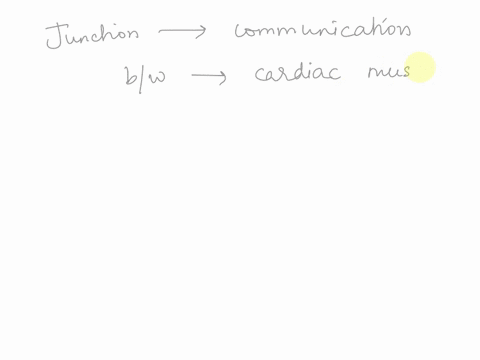 Junction → communication
b/w → cardiac mus